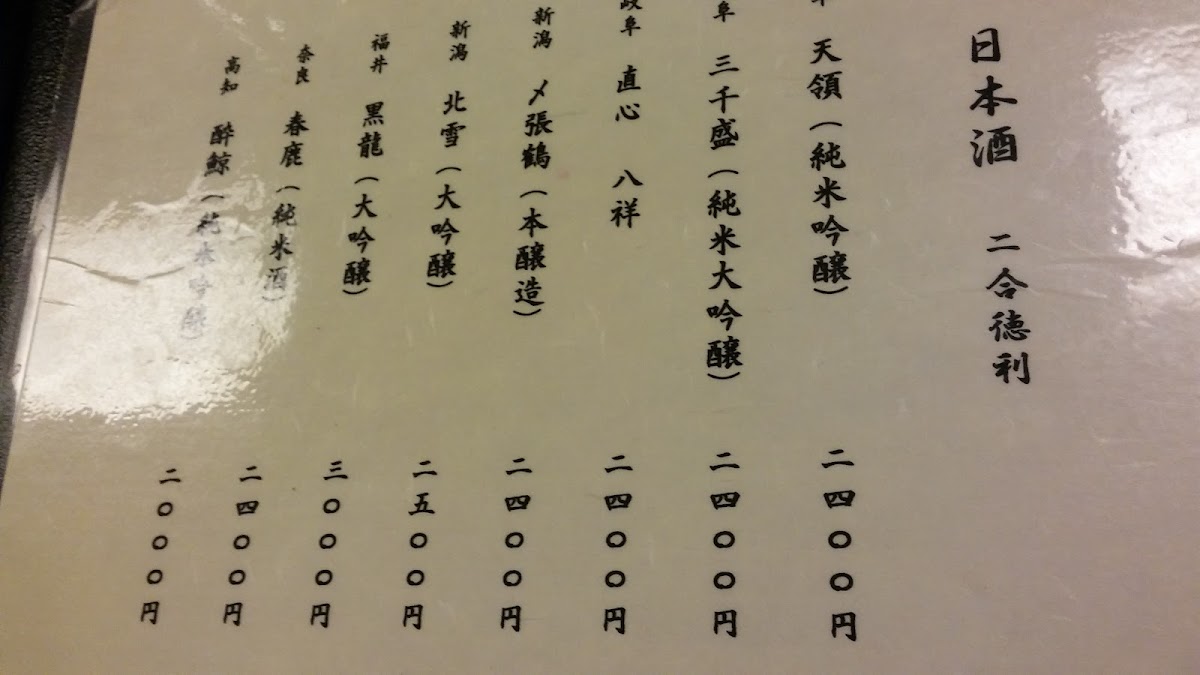 日本酒 二合徳利
阜 天領(純米吟醸) 二四〇〇円
阜 三千盛(純米大吟醸) 二四〇〇円
岐阜 直心 八祥 二四〇〇円
新潟 〆張鶴(本醸造) 二四〇〇円
新潟 北雪(大吟醸) 二五〇〇円
福井 黒龍(大吟醸) 三〇〇〇円
奈良 春鹿(純米酒) 二四〇〇円
高知 酔鯨(純米吟醸) 二〇〇〇円